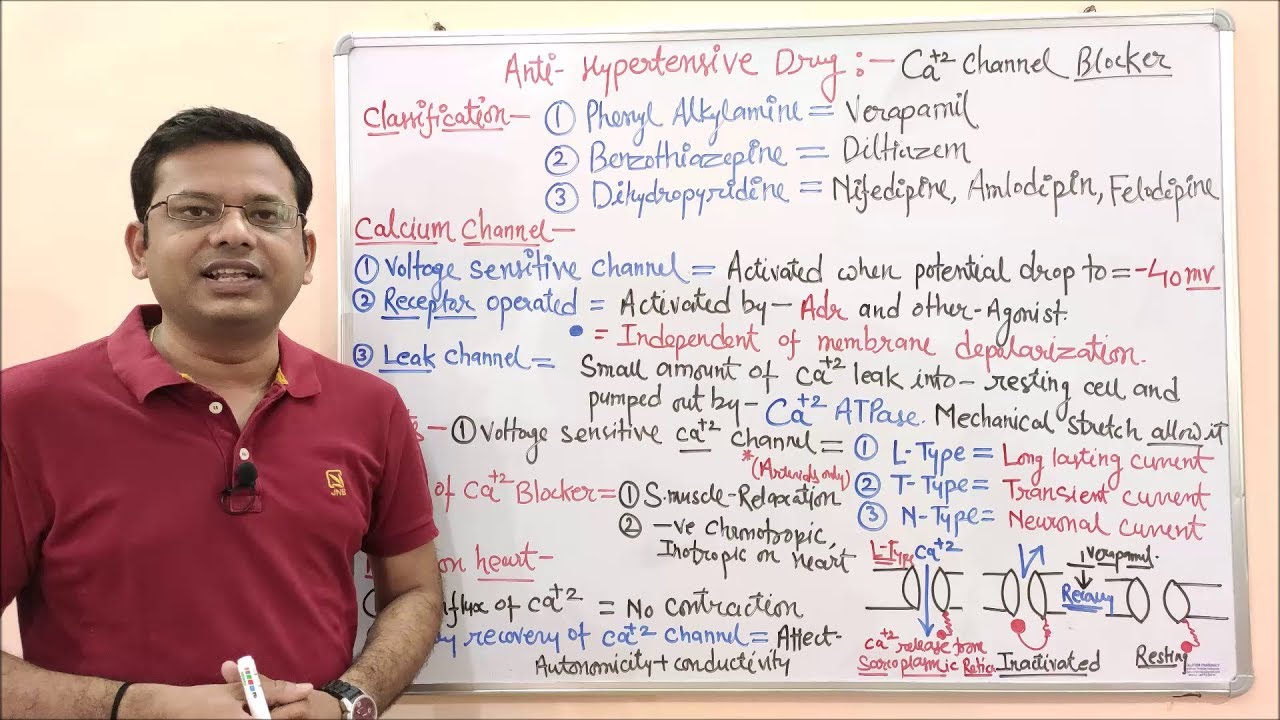 Anti-Hypertensive Drug :- Ca+2 Channel Blocker
Classification- ① Phenyl Alkylamine = Verapamil
② Benzothiazepine = Diltiazem
③ Dihydropyridine = Nifedipine, Amlodipin, Felodipine
Calcium Channel-
① Voltage sensitive channel = Activated when potential drop to = -40mv
② Receptor operated = Activated by- Adr and other-Agonist.
= Independent of membrane depolarization.
③ Leak channel = Small amount of Ca+2 leak into- resting cell and
pumped out by- Ca+2 ATPase. Mechanical stretch allow it
- ① Voltage sensitive Ca+2 channel = ① L-Type = Long lasting current
*(Arterials only)
② T-Type = Transient current
③ N-Type = Neuronal current
of Ca+2 Blocker = ① S.muscle-Relaxation
② -ve Chronotropic,
Inotropic on heart
on heart-
of Ca+2 = No contraction
recovery of Ca+2 channel = Affect-
Autonomicity + conductivity
L-Type Ca+2
Verapamil.
Recovery
Ca+2 release from
Sarcoplasmic
Inactivated
Resting
JNB